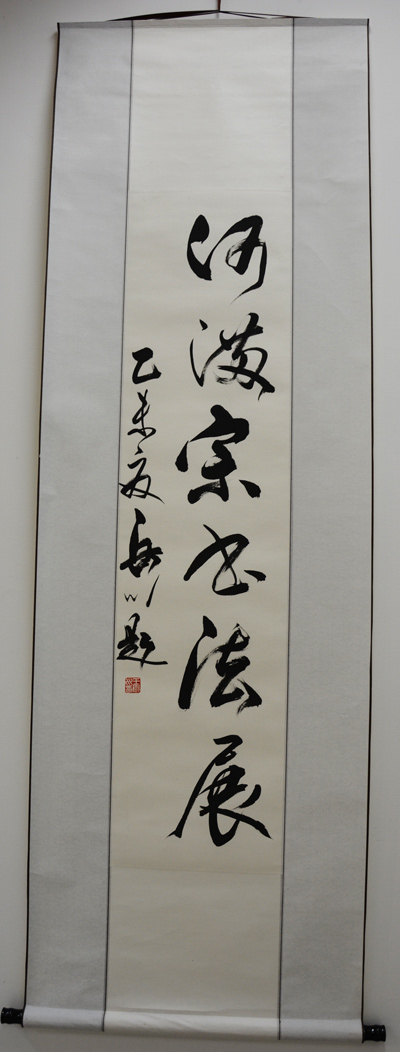 何满宗书法展
乙未夏岳川题